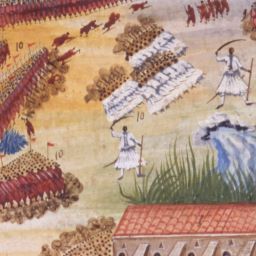 10
10
10
1